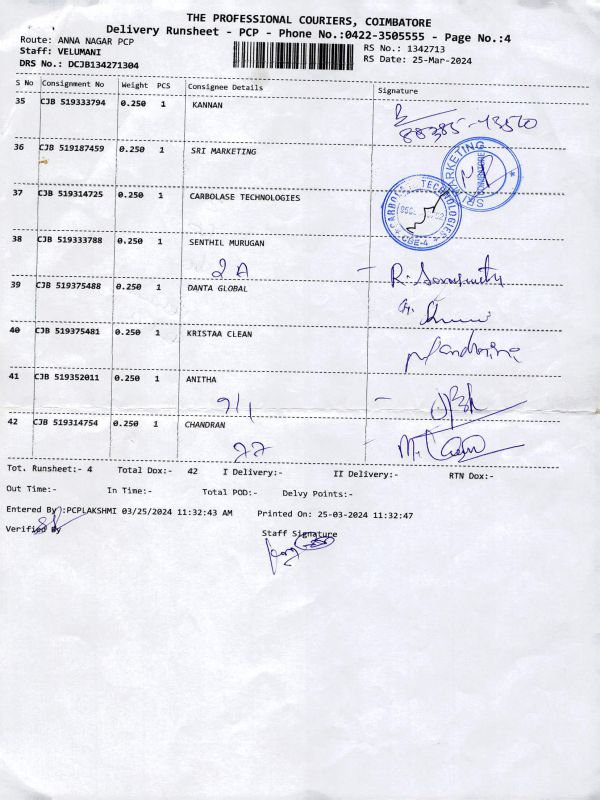 THE PROFESSIONAL COURIERS, COIMBATORE
Delivery Runsheet - PCP - Phone No.:0422-3505555 - Page No.:4
Route: ANNA NAGAR PCP RS No.: 1342713
Staff: VELUMANI RS Date: 25-Mar-2024
DRS No.: DCJB134271304
S No Consignment No Weight PCS Consignee Details Signature
35 CJB 519333794 0.250 1 KANNAN
36 CJB 519187459 0.250 1 SRI MARKETING
SRI MARKETING
37 CJB 519314725 0.250 1 CARBOLASE TECHNOLOGIES
TECHNOLOGIES
CBE-4
38 CJB 519333788 0.250 1 SENTHIL MURUGAN
2A
39 CJB 519375488 0.250 1 DANTA GLOBAL
40 CJB 519375481 0.250 1 KRISTAA CLEAN
41 CJB 519352011 0.250 1 ANITHA
9/1
42 CJB 519314754 0.250 1 CHANDRAN
Tot. Runsheet:- 4 Total Dox:- 42 I Delivery:- II Delivery:- RTN Dox:-
Out Time:- In Time:- Total POD:- Delvy Points:-
Entered By :PCPLAKSHMI 03/25/2024 11:32:43 AM Printed On: 25-03-2024 11:32:47
Verified By Staff Signature